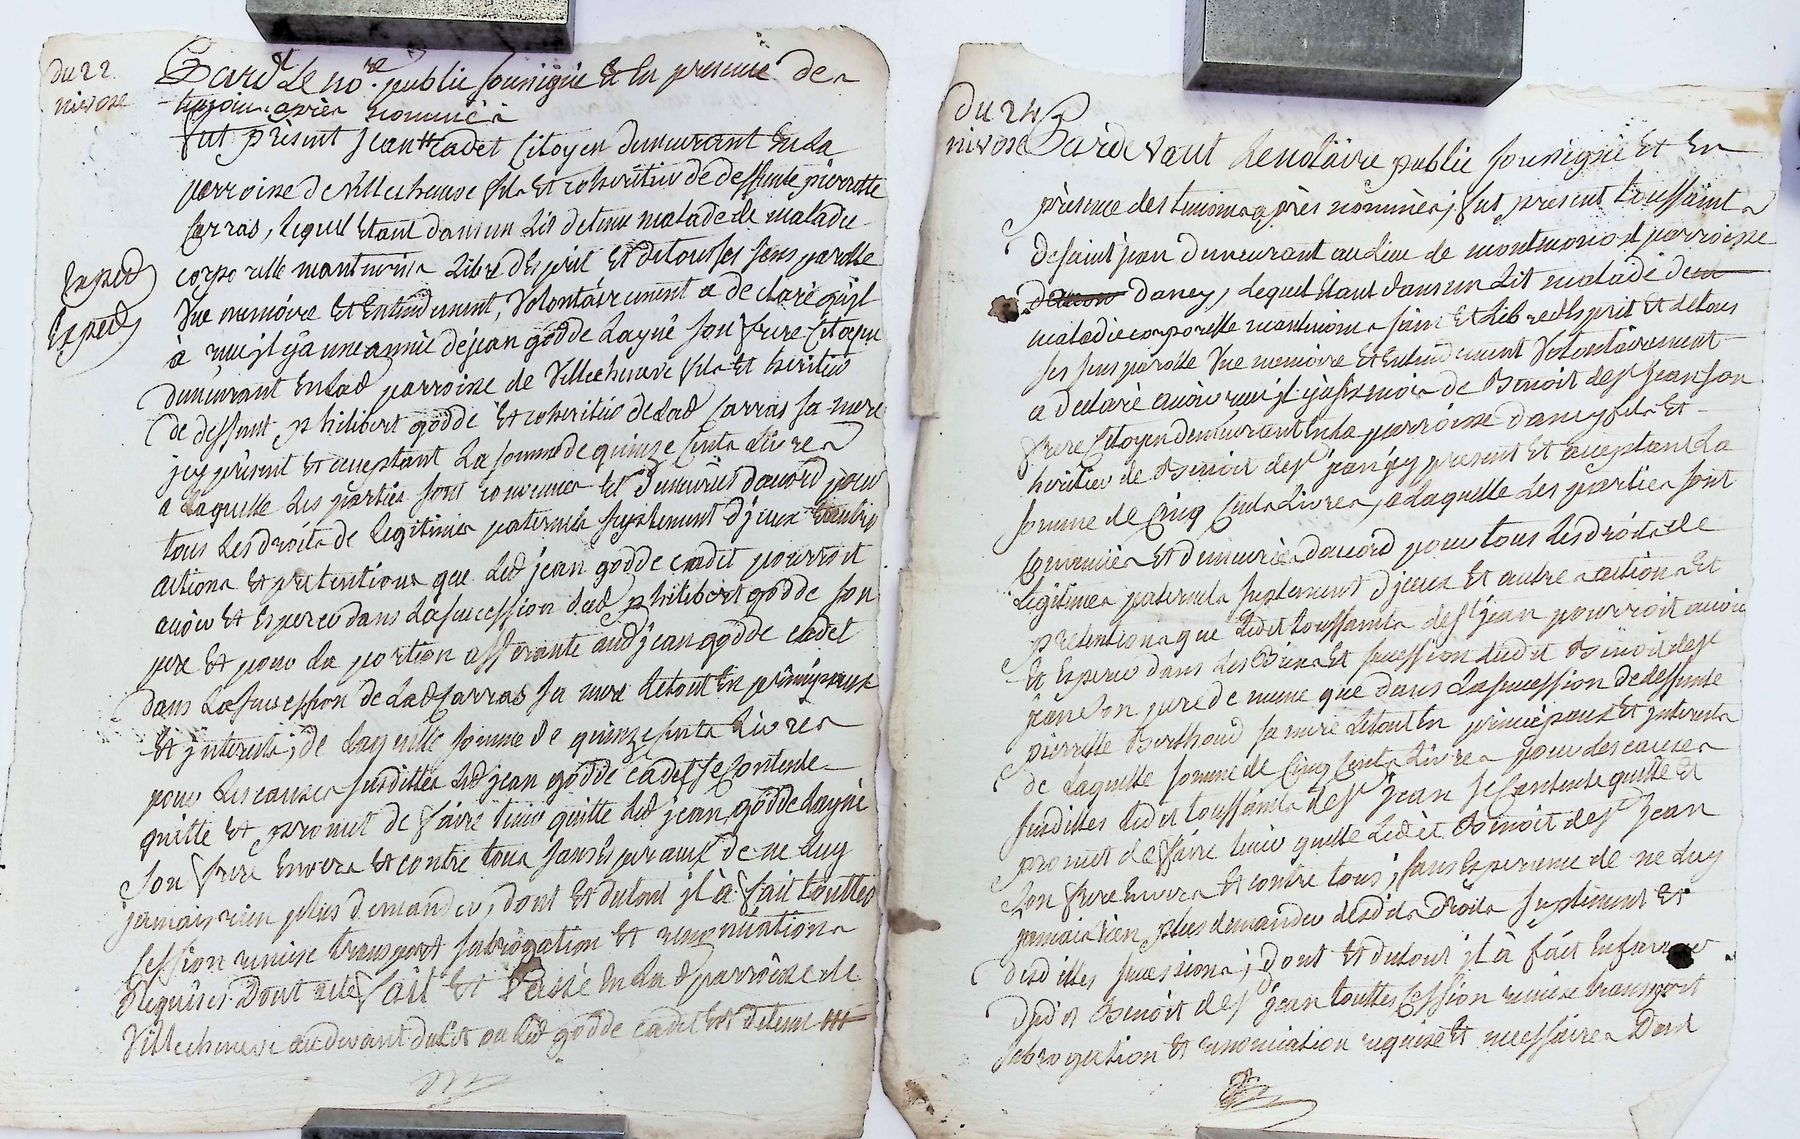 du 22
nivose
Pard.t le no.re public sousigné et en presence des
temoins aprés nommés
fut présent Jean godde cadet Citoyen demeurant en la
parroisse de villecheneve fils et coheritier de deffunte pierrette
Carras, lequel etant dans un lit detenu malade de maladie
corporelle neantmoins libre desprit et de tous ses sens parolle
Vue memoire et Entendement, Volontairement a declaré quil
à reçu jl y à une année de jean godde layné son frere Citoyen
demeurant en lad parroisse de Villecheneve fils et heritier
de deffunt philibert godde et coheritier de lad Carras sa mere
jcy présent et acceptant la somme de quinze Cents livres
a laquelle les parties sont convenues et demeurées daccord pour
tous les droits de legitimes paternels suplement djceux
actions et pretentions que led jean godde cadet pourroit
avoir et esperer dans la succession dud philibert godde son
pere et pour la portion afferante aud jean godde cadet
dans la succession de lad Carras sa mere le tout en principaux
et jnterests; de laquelle somme de quinze cents livres
pour les causes susdittes led jean godde cadet se Contente
quitte et promet de faire tenir quitte led jean godde layné
son frere envers et contre tous sans esperance de ne luy
jamais rien plus demander, dont et du tout jl à fait touttes
Cession remise transport subrogation et renonciations
requises. Dont acte fait et Passé en lad parroisse de
Villecheneve au devant du lit ou led godde cadet est detenu
Exped
Exped
du 24
nivose
Pardevant le notaire public sousigné et en
présence des temoins aprés nommés, fut present toussaint
de saint jean demeurant au lieu de montmonost parroisse
dancy, lequel etant dans un lit malade de
maladie corporelle neantmoins sain et libre desprit et de tous
ses sens parolle Vue memoire et Entendement Volontairement
a declaré avoir reçu jl y à six mois de Benoit de St Jean son
frere Citoyen demeurant en la parroisse dancy fils et
heritier de Benoit de St jean jcy present et acceptant la
somme de Cinq Cents livres, a laquelle les parties sont
Convenües et demeurées daccord pour tous les droits de
legitimes paternels suplement djceux et autres actions et
prétentions que ledit toussaint de St jean pourroit avoir
et esperer dans les Biens et succession dudit Benoit de St
jean son pere de meme que dans la succession de deffunte
pierrette Berthoud sa mere le tout en principaux et jnterests
de laquelle somme de Cinq Cents livres pour les causes
susdittes ledit toussaint de St Jean se Contente quitte et
promet de faire tenir quitte ledit Benoit de St Jean
son frere envers et contre tous; sans esperance de ne luy
jamais rien plus demander desdits droits suplement et
desdittes successions; dont et du tout jl à fait en faveur
dudit Benoit de St jean touttes Cession remise transport
subrogation et renonciation requise et necessaires Dont